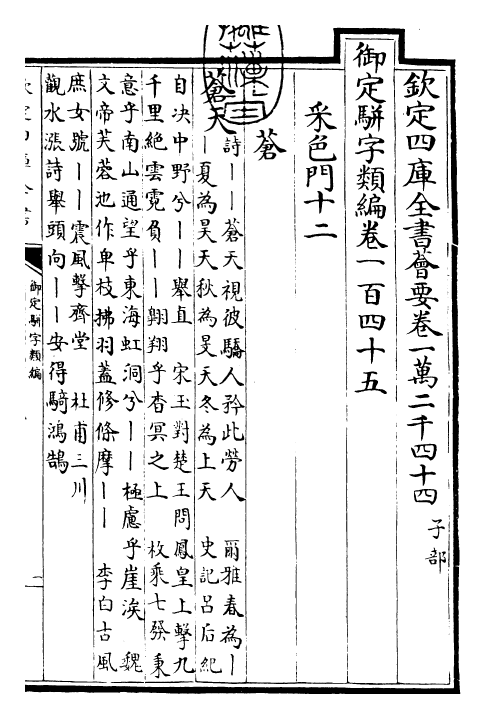 欽定四庫全書薈要卷一萬二千四十四 子部
御定駢字類編卷一百四十五
采色門十二
蒼
蒼天
詩｜｜蒼天視彼驕人矜此勞人 爾雅春為｜
｜夏為昊天秋為旻天冬為上天 史記呂后紀
自决中野兮｜｜舉直 宋玉對楚王問鳳皇上擊九
千里絶雲霓負｜｜翺翔乎杳冥之上 枚乘七發秉
意乎南山通望乎東海虹洞兮｜｜極慮乎崖涘 魏
文帝芙蓉池作卑枝拂羽蓋修條摩｜｜ 李白古風
庶女號｜｜震風擊齊堂 杜甫三川
觀水漲詩舉頭向｜｜安得騎鴻鵠
御定駢字類編
一